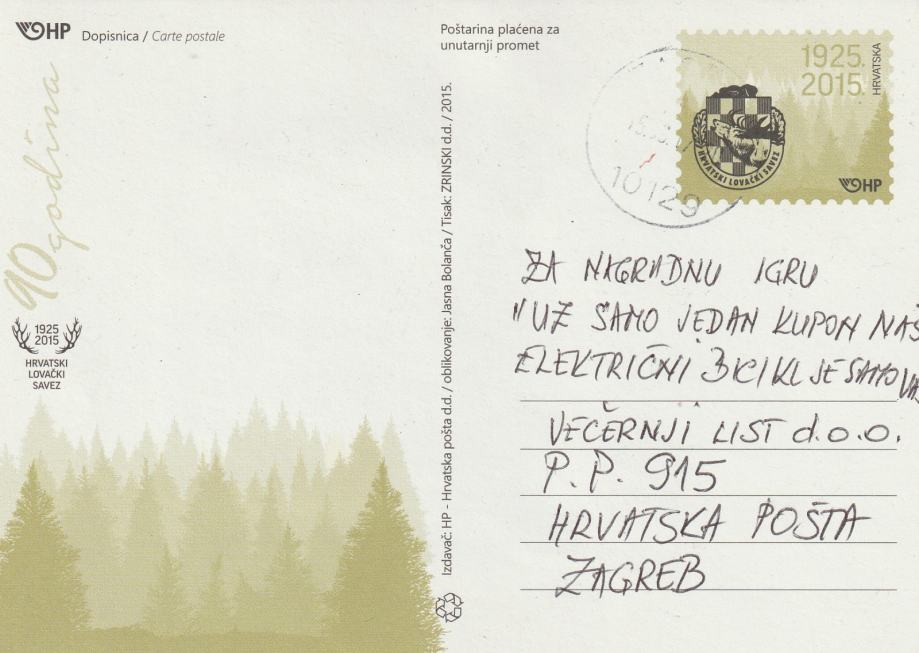 HP Dopisnica / Carte postale
90 godina
1925
2015
HRVATSKI
LOVAČKI
SAVEZ
Poštarina plaćena za
unutarnji promet
Izdavač: HP - Hrvatska pošta d.d. / oblikovanje: Jasna Bolanča / Tisak: ZRINSKI d.d. / 2015.
1925.
2015.
HRVATSKA
HRVATSKI LOVAČKI SAVEZ
HP
10129
ZA NAGRADNU IGRU
"UZ SAMO JEDAN KUPON NAŠ
ELEKTRIČNI BICIKL JE SAMO VAŠ
VEČERNJI LIST d.o.o.
P.P. 915
HRVATSKA POŠTA
ZAGREB